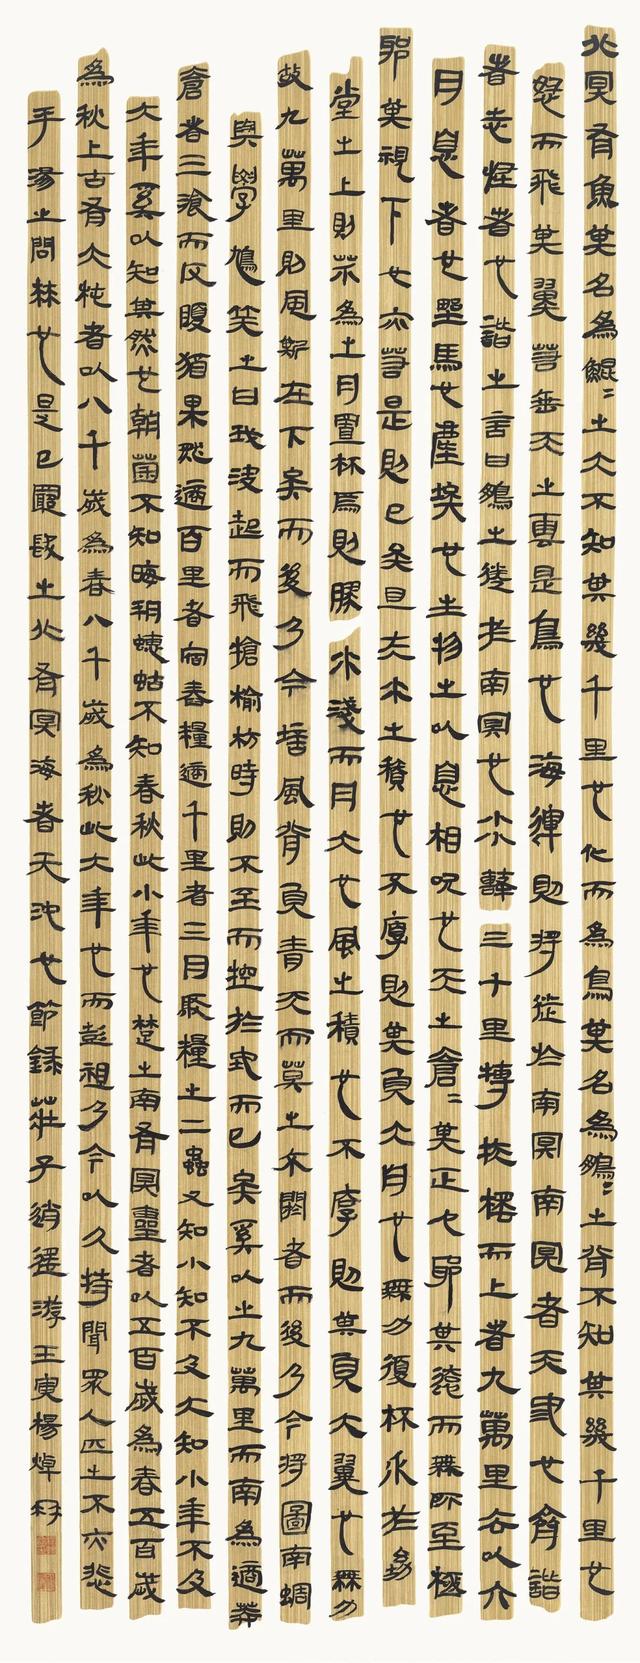 北冥有魚其名為鯤〻之大不知其幾千里也化而為鳥其名為鵬〻之背不知其幾千里也
怒而飛其翼若垂天之雲是鳥也海運則將徙於南冥南冥者天池也齊諧
者志怪者也諧之言曰鵬之徙於南冥也水擊三千里摶扶搖而上者九萬里去以六
月息者也野馬也塵埃也生物之以息相吹也天之蒼〻其正色邪其遠而無所至極
邪其視下也亦若是則已矣且夫水之積也不厚則其負大舟也無力覆杯水於坳
堂之上則芥為之舟置杯焉則膠水淺而舟大也風之積也不厚則其負大翼也無力
故九萬里則風斯在下矣而後乃今培風背負青天而莫之夭閼者而後乃今將圖南蜩
與學鳩笑之曰我決起而飛搶榆枋時則不至而控於地而已矣奚以之九萬里而南為適莽
蒼者三湌而反腹猶果然適百里者宿舂糧適千里者三月聚糧之二蟲又知小知不及大知小年不及
大年奚以知其然也朝菌不知晦朔蟪蛄不知春秋此小年也楚之南有冥靈者以五百歲為春五百歲
為秋上古有大椿者以八千歲為春八千歲為秋此大年也而彭祖乃今以久特聞眾人匹之不亦悲
乎湯之問棘也是已窮髮之北有冥海者天池也節錄莊子逍遙游壬寅楊焯